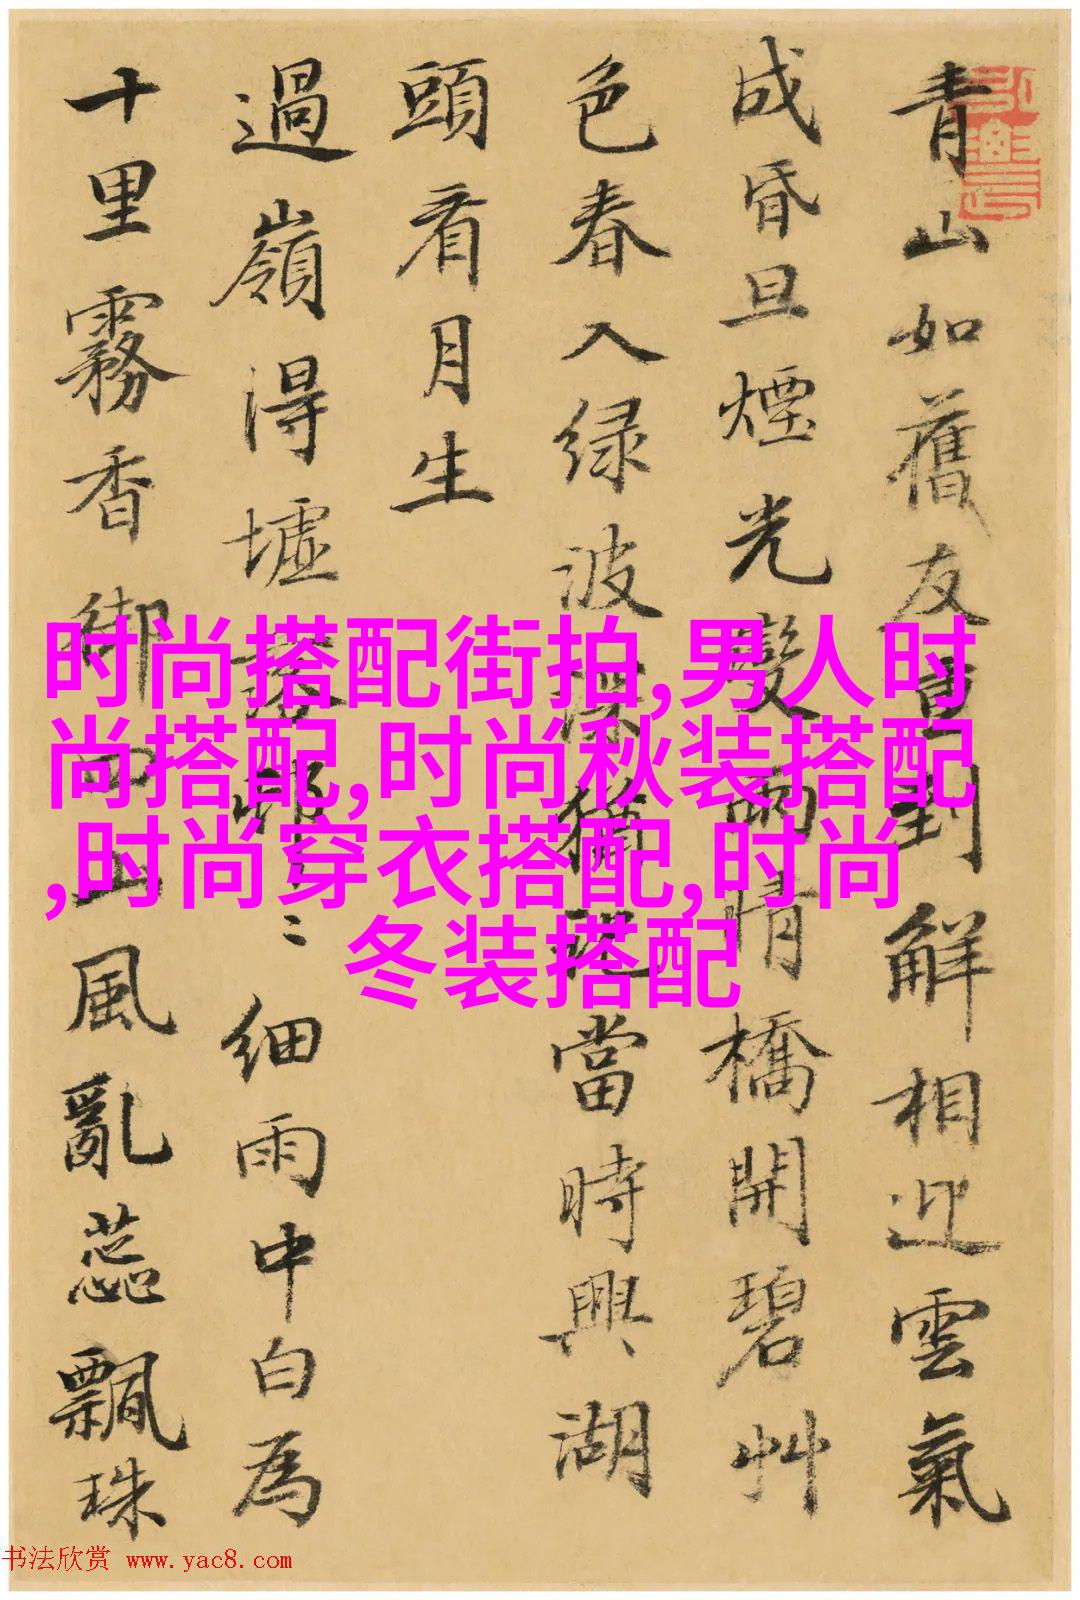 青山如舊友重到解相迎雲氣
成昏旦煙光變雨晴橋開碧艸
色春入绿波深猶記當時興湖
頭看月生
過嶺得墟落邨二細雨中白為
十里霧香御四山風亂蕊飄珠
时尚搭配街拍,男人时
尚搭配,时尚秋装搭配
,时尚穿衣搭配,时尚
冬装搭配
书法欣赏 www.yac8.com